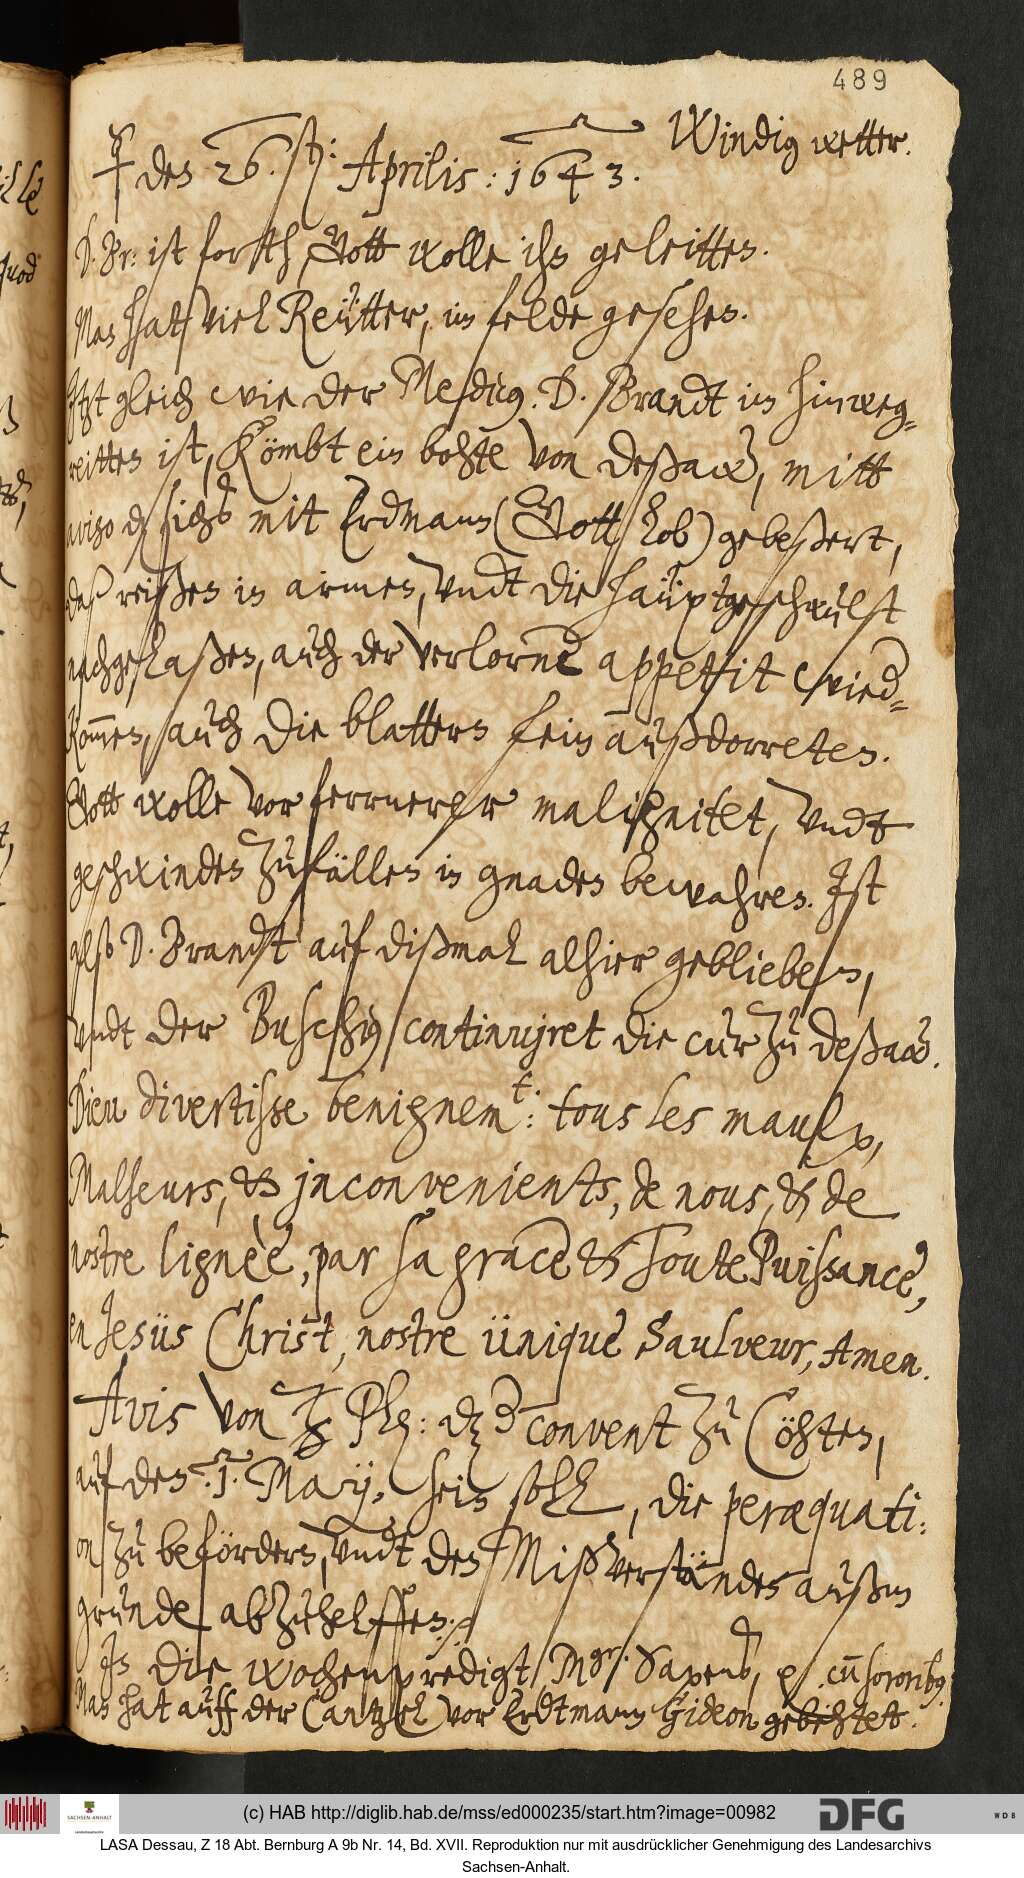 489
Windig wetter.
☿ den 26. sten: Aprilis: 1643.
D. Br: ist forth, Gott wolle ihn geleitten.
Man hat viel Reütter, im felde gesehen.
Itzt gleich wie der Medicus. D. Brandt im hinweg-
reitten ist, kömbt ein bohte von Deßaw, mitt
aviso daß sichs mit Erdmann (Gott lob) gebeßert,
daß reißen in armen, vndt die hauptgeschwulst
nachgelaßen, auch der verlorne appetit wied-
kom̄en, auch die blattern fein außdorreten.
Gott wolle vor fernerer malignitet, vndt
geschwinden zufällen in gnaden bewahren. Ist
also D. Brandt auf dißmal alhier geblieben,
vndt der Buschius continuiret die cur zu Deßaw.
Dieu divertisse benignemt: tous les maulx,
Malheurs, & inconvenients, de nous, & de
nostre lignèe, par sa grace & toute Puissance,
en Jesüs Christ, nostre ünique Saulveur, Amen.
Avis von Plötzkau: daß der convent zu Cöhten,
auf den .1. Maij, sein soll, die peræquati:
on zu befördern, vndt den Mißverständen außm
grunde abzuhelffen.
In die wochenpredigt, Mgr. Saxens, cum sororibus.
Man hat auff der Cantzel vor Erdtmann Gideon gebehtet.
(c) HAB http://diglib.hab.de/mss/ed000235/start.htm?image=00982
SACHSEN-ANHALT
DFG
WDB
LASA Dessau, Z 18 Abt. Bernburg A 9b Nr. 14, Bd. XVII. Reproduktion nur mit ausdrücklicher Genehmigung des Landesarchivs
Sachsen-Anhalt.